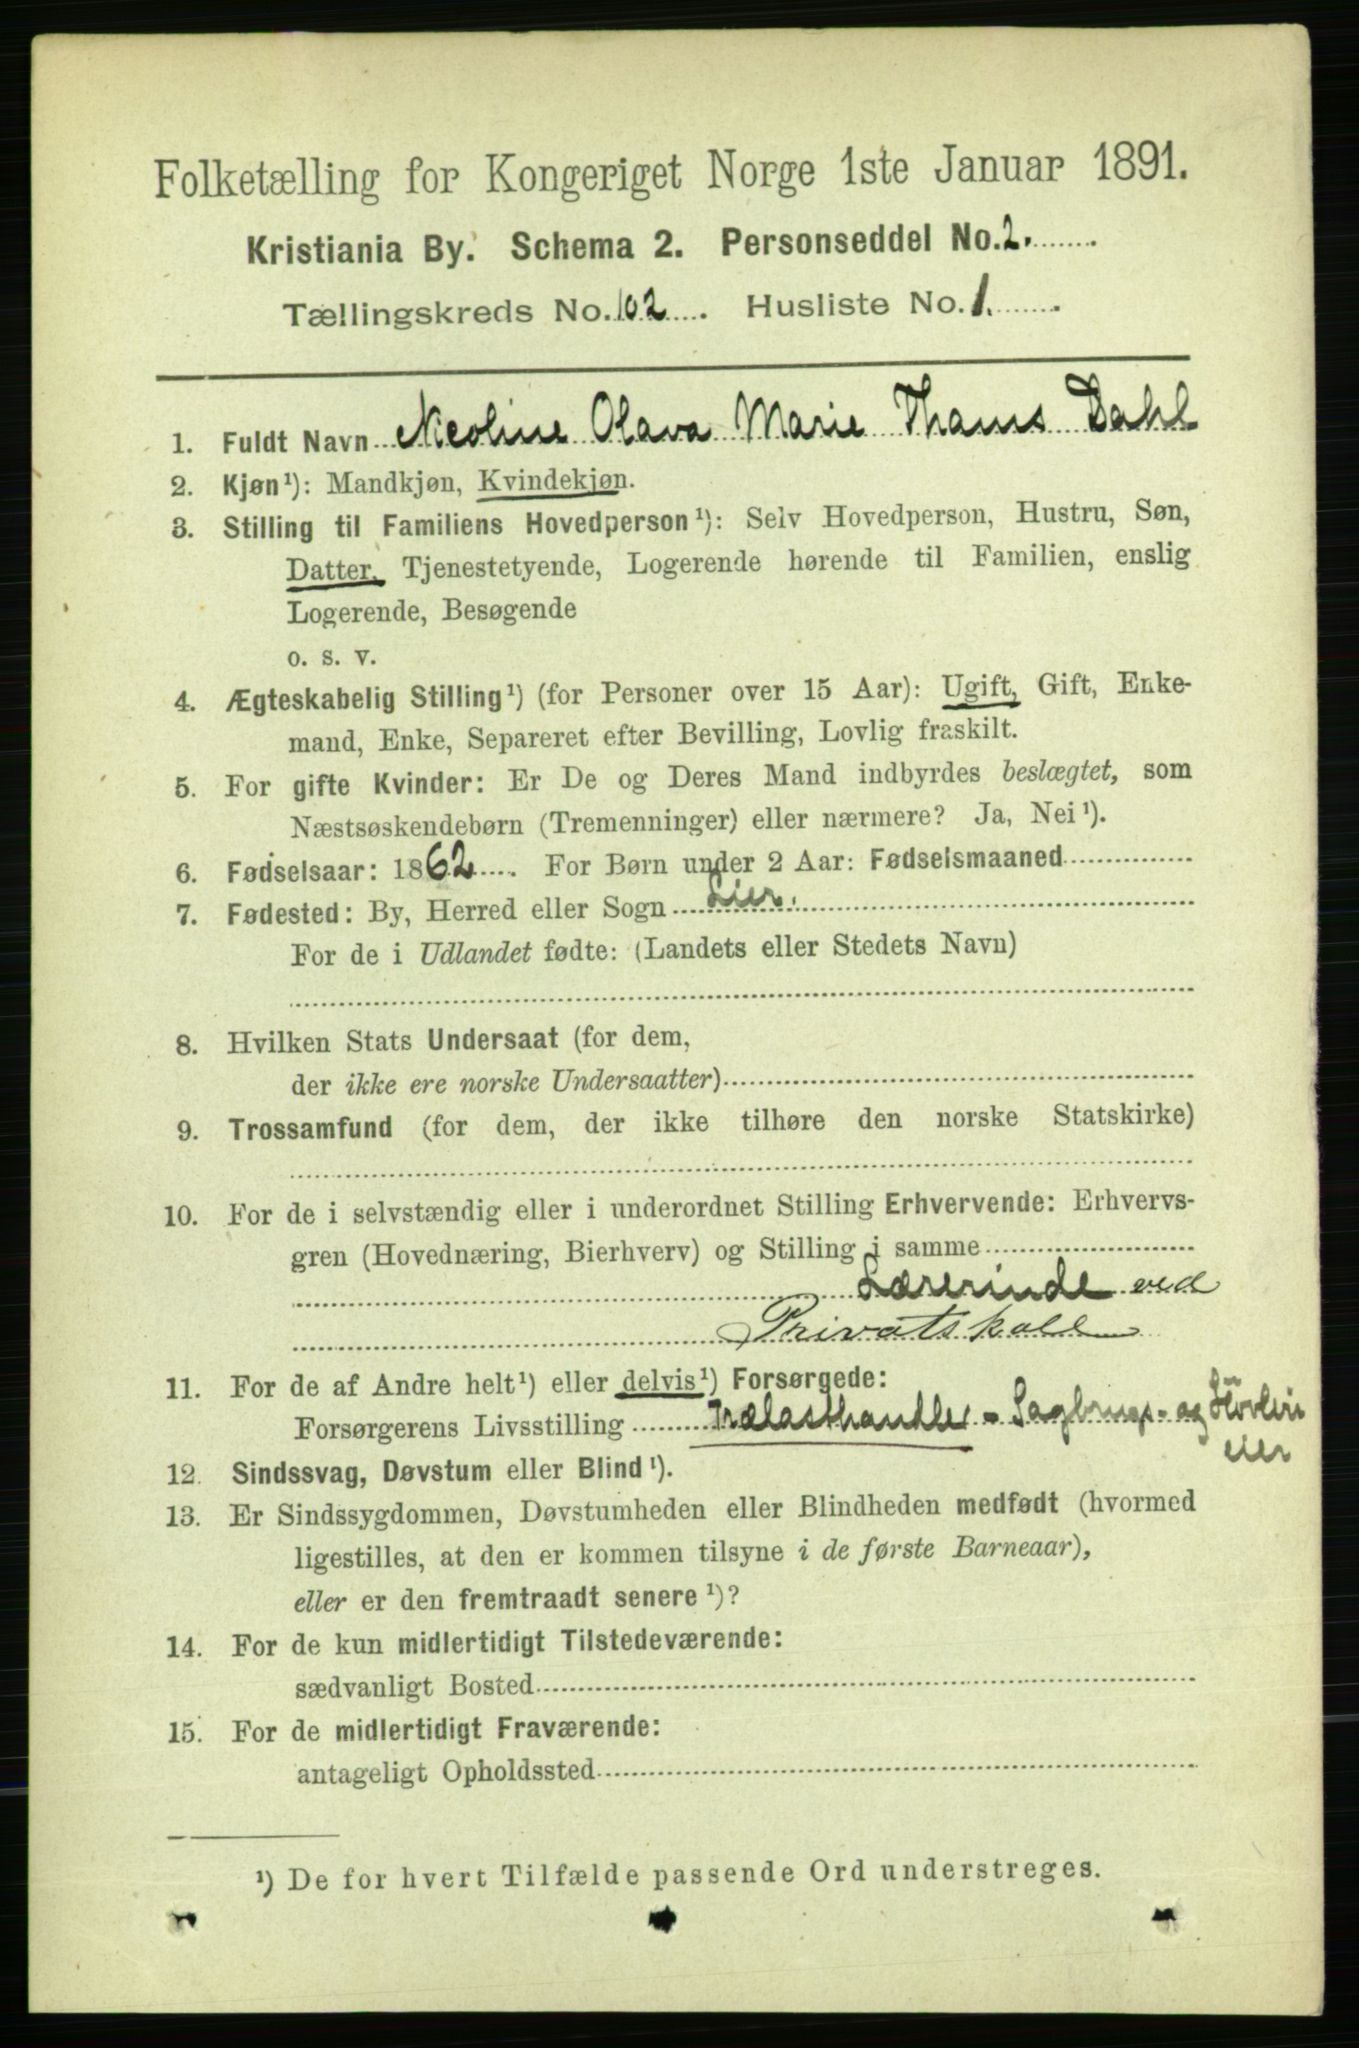 Folketælling for Kongeriget Norge 1ste Januar 1891.
Kristiania By. Schema 2. Personseddel No. 2.
Tællingskreds No. 102. Husliste No. 1.
1. Fuldt Navn Nicoline Olava Marie Thams Dahl
2. Kjøn¹): Mandkjøn, Kvindekjøn.
3. Stilling til Familiens Hovedperson¹): Selv Hovedperson, Hustru, Søn,
Datter, Tjenestetyende, Logerende hørende til Familien, enslig
Logerende, Besøgende
o. s. v.
4. Ægteskabelig Stilling¹) (for Personer over 15 Aar): Ugift, Gift, Enke-
mand, Enke, Separeret efter Bevilling, Lovlig fraskilt.
5. For gifte Kvinder: Er De og Deres Mand indbyrdes beslægtet, som
Næstsøskendebørn (Tremenninger) eller nærmere? Ja, Nei¹).
6. Fødselsaar: 1862. For Børn under 2 Aar: Fødselsmaaned
7. Fødested: By, Herred eller Sogn Lier.
For de i Udlandet fødte: (Landets eller Stedets Navn)
8. Hvilken Stats Undersaat (for dem,
der ikke ere norske Undersaatter)
9. Trossamfund (for dem, der ikke tilhøre den norske Statskirke)
10. For de i selvstændig eller i underordnet Stilling Erhvervende: Erhvervs-
gren (Hovednæring, Bierhverv) og Stilling i samme
Lærerinde ved
Privatskole
11. For de af Andre helt¹) eller delvis¹) Forsørgede:
Forsørgerens Livsstilling Trælasthandler - Sagbrugs- og Høvleri
eier
12. Sindssvag, Døvstum eller Blind¹).
13. Er Sindssygdommen, Døvstumheden eller Blindheden medfødt (hvormed
ligestilles, at den er kommen tilsyne i de første Barneaar),
eller er den fremtraadt senere¹)?
14. For de kun midlertidigt Tilstedeværende:
sædvanligt Bosted
15. For de midlertidigt Fraværende:
antageligt Opholdssted
¹) De for hvert Tilfælde passende Ord understreges.